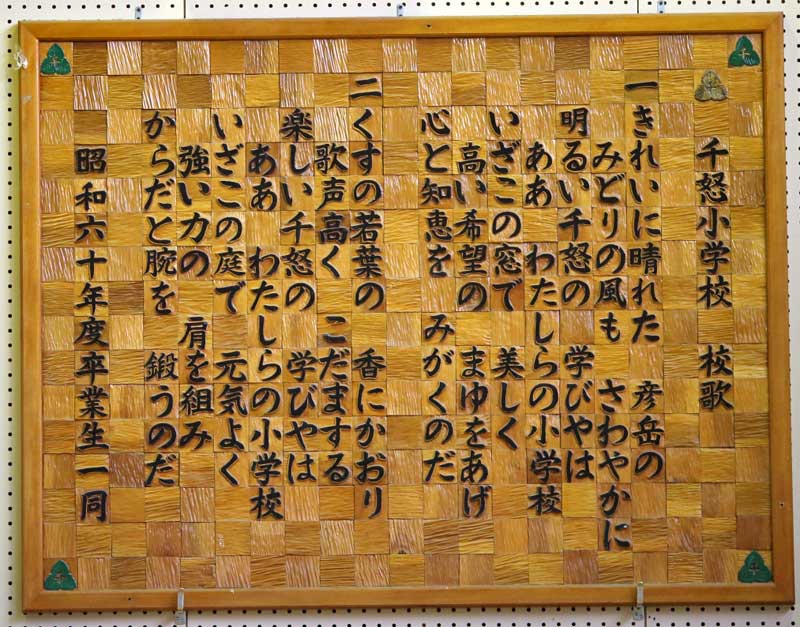 千怒小学校 校歌
一きれいに晴れた 彦岳の
みどりの風も さわやかに
明るい千怒の 学びやは
ああ わたしらの小学校
いざこの窓で 美しく
高い希望の まゆをあげ
心と知恵を みがくのだ
二くすの若葉の 香にかおり
歌声高く こだまする
楽しい千怒の 学びやは
ああ わたしらの小学校
いざこの庭で 元気よく
強い力の 肩を組み
からだと腕を 鍛うのだ
昭和六十年度卒業生一同